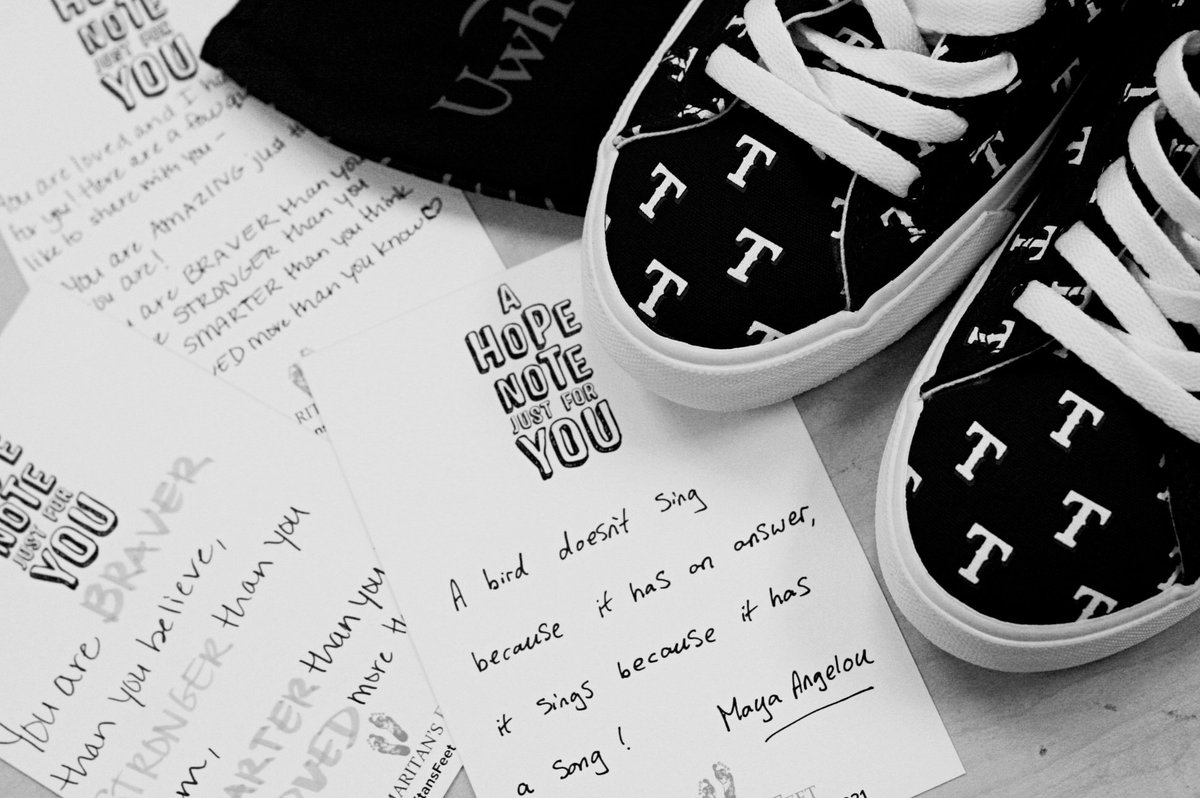 NOTE
JUST FOR
YOU
You are loved and I
for you! Here are a few
like to share with you -
You are AMAZING just
you are!
are BRAVER than you
STRONGER than you
SMARTER than you think
more than you know♡
Uwh
A
HOPE
NOTE
JUST FOR
YOU
A bird doesn't sing
because it has an answer,
it sings because it has
a song!
Maya Angelou
NOTE
JUST FOR
YOU
You are BRAVER
than you believe,
STRONGER than you
than you
more
T
T
T
T
T
T
T
T